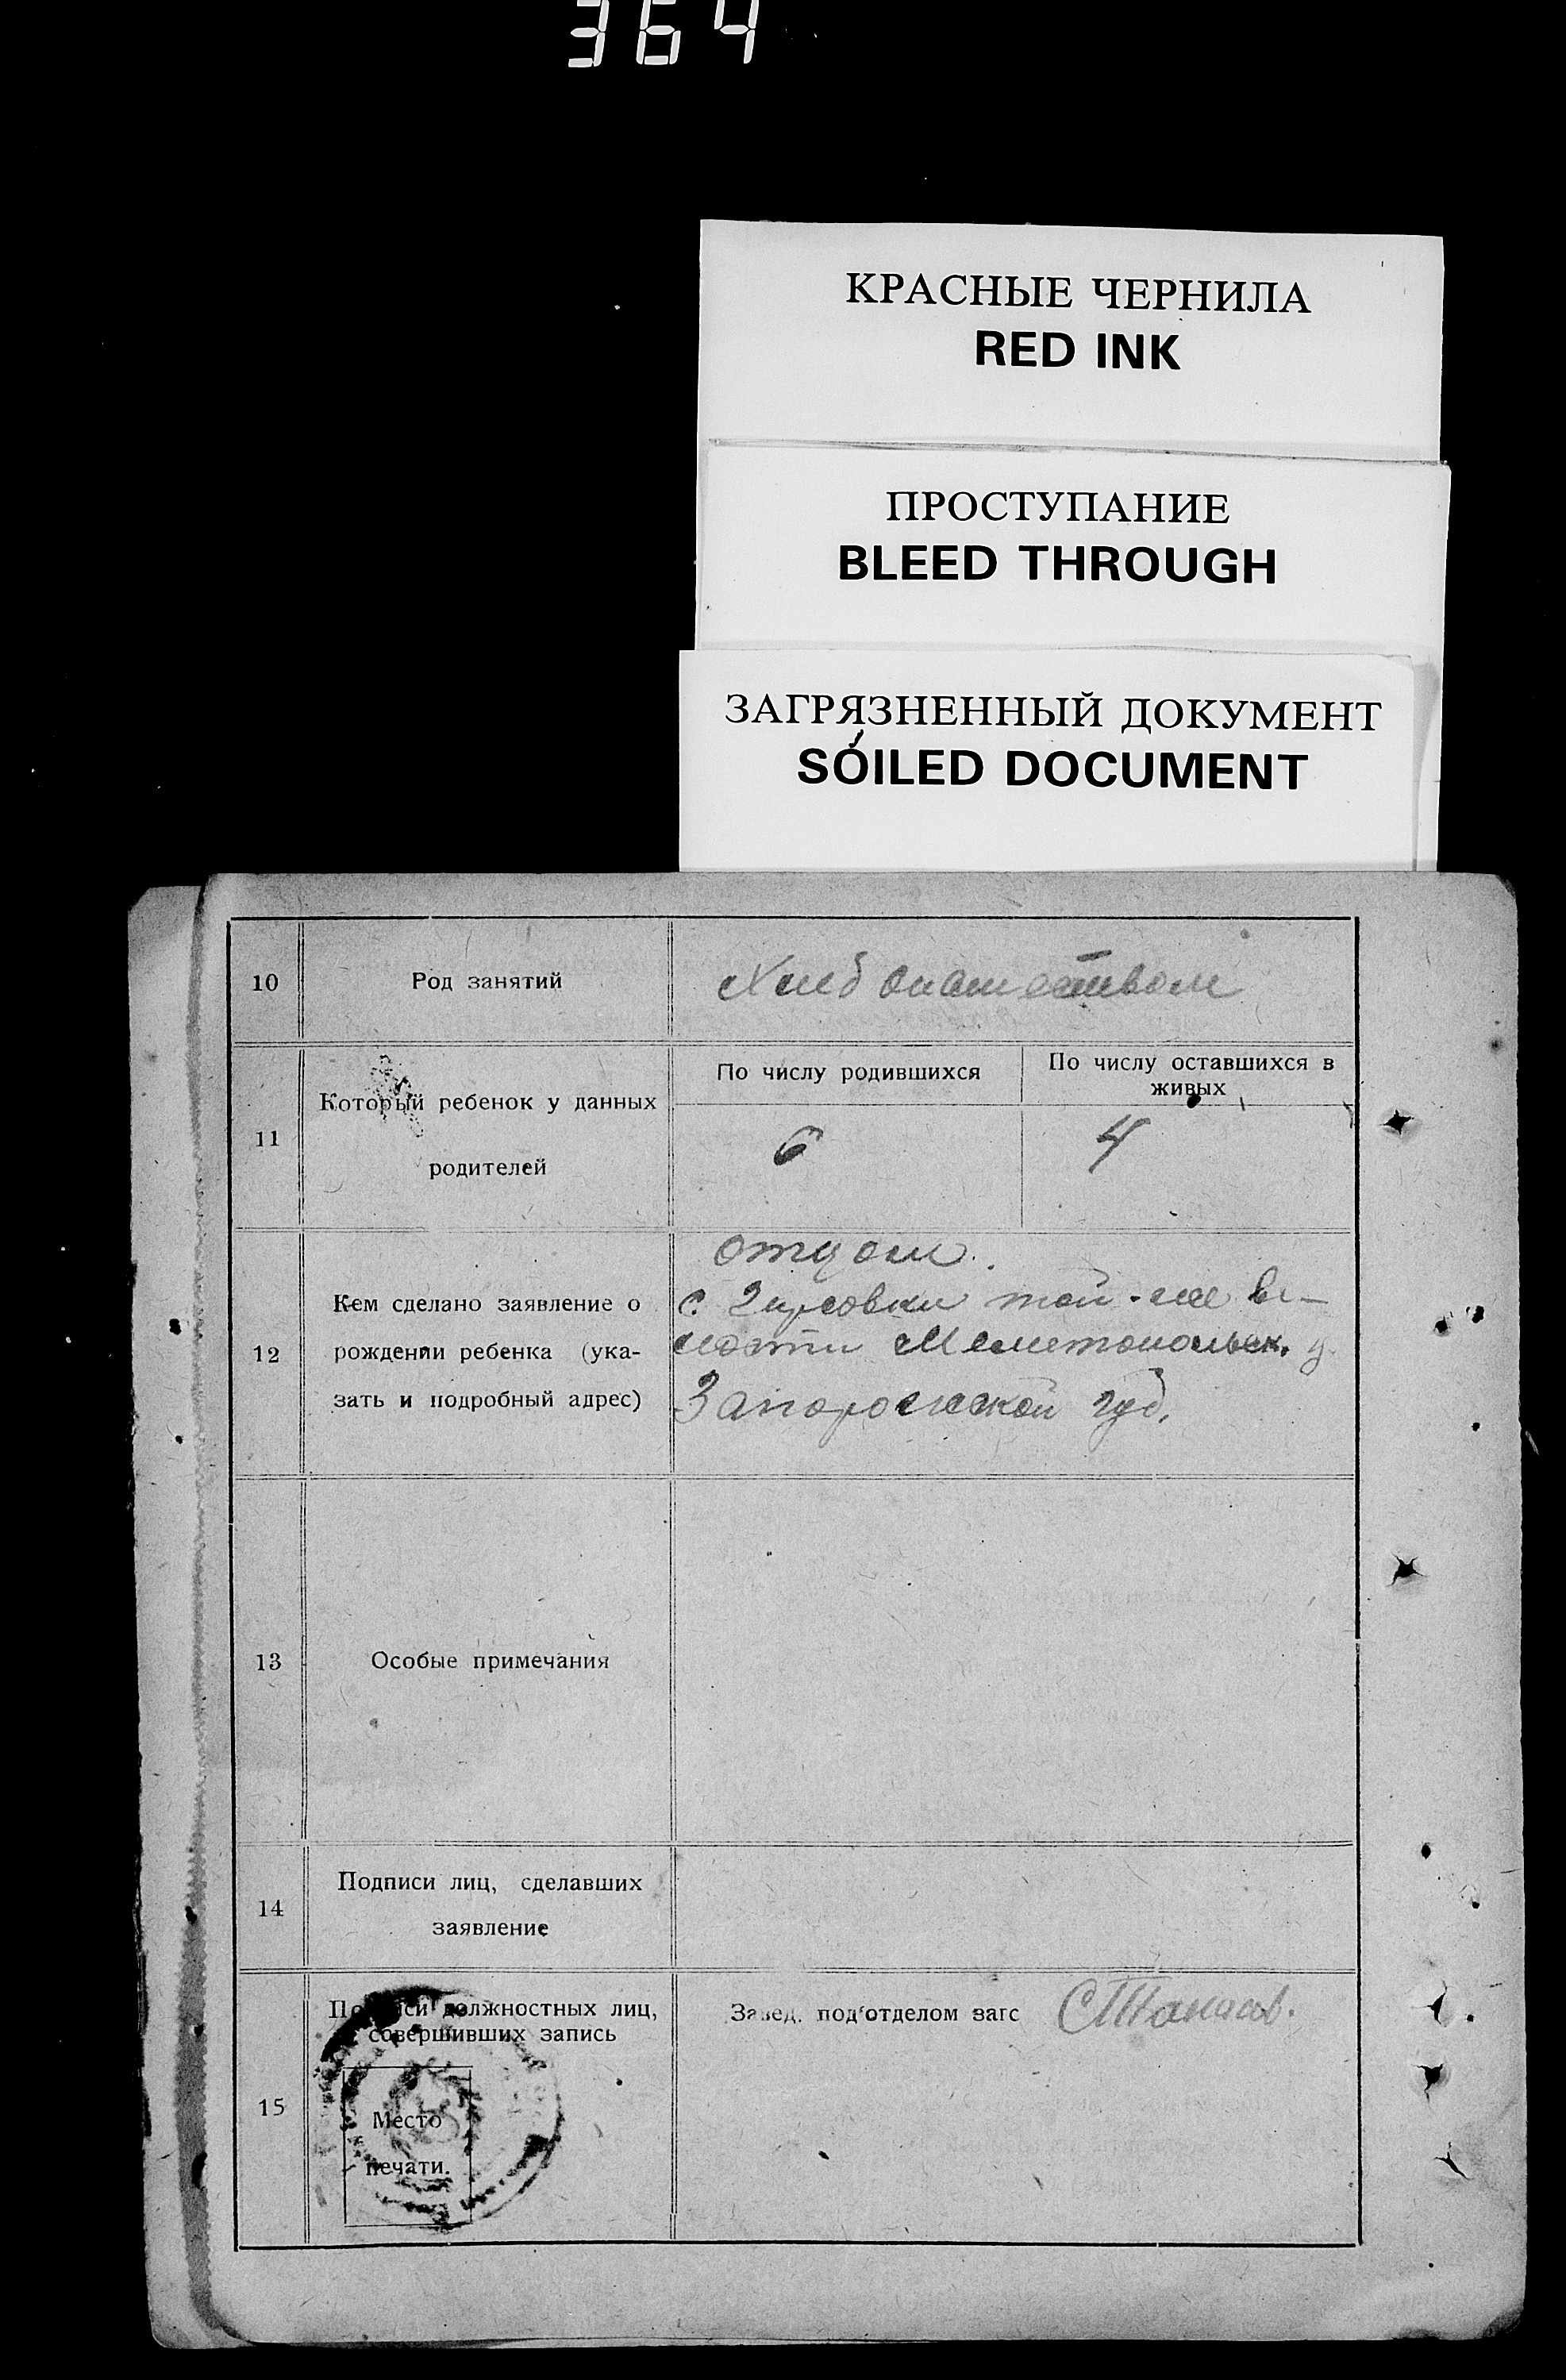 364
КРАСНЫЕ ЧЕРНИЛА
RED INK
ПРОСТУПАНИЕ
BLEED THROUGH
ЗАГРЯЗНЕННЫЙ ДОКУМЕНТ
SOILED DOCUMENT
10
Род занятий
11
Который ребенок у данных
родителей
По числу родившихся
По числу оставшихся в
живых
6
4
12
Кем сделано заявление о
рождении ребенка (ука-
зать и подробный адрес)
отцом.
с. Гирсовки той-же во-
лости Мелитопольск. у.
Запорожской губ.
13
Особые примечания
14
Подписи лиц, сделавших
заявление
15
Подписи должностных лиц,
совершивших запись
Место
печати.
Завед. под'отделом загс